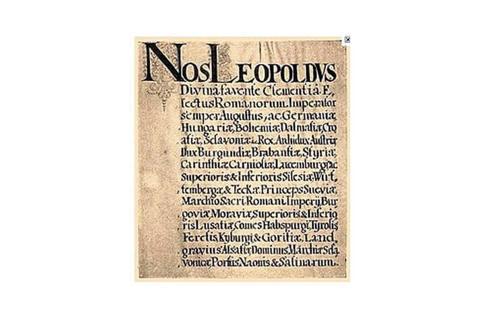 NOS LEOPOLDVS
Divinâ favente Clementiâ E,
lectus Romanorum Imperator
semper Augustus, ac Germaniæ
Hungariæ, Bohemiæ, Dalmatiæ, Cro
atiæ, Sclavoniæ Rex, Archidux Austriæ
Dux Burgundiæ, Brabantiæ, Styriæ
Carinthiæ Carnioliæ, Luxemburgi, ac
Superioris & Inferioris Silesiæ, Wirt,
tembergæ, & Teckæ, Princeps Sueviæ,
Marchio Sacri Romani Imperij Bur
goviæ Moraviæ, Superioris & Inferio
ris Lusatiæ, Comes Habspurgi, Tyrolis
Feretis Kyburgi & Goritiæ, Land,
gravius Alsatiæ, Dominus Marchiæ Scla,
vonicæ, Portus Naonis & Salinarum.